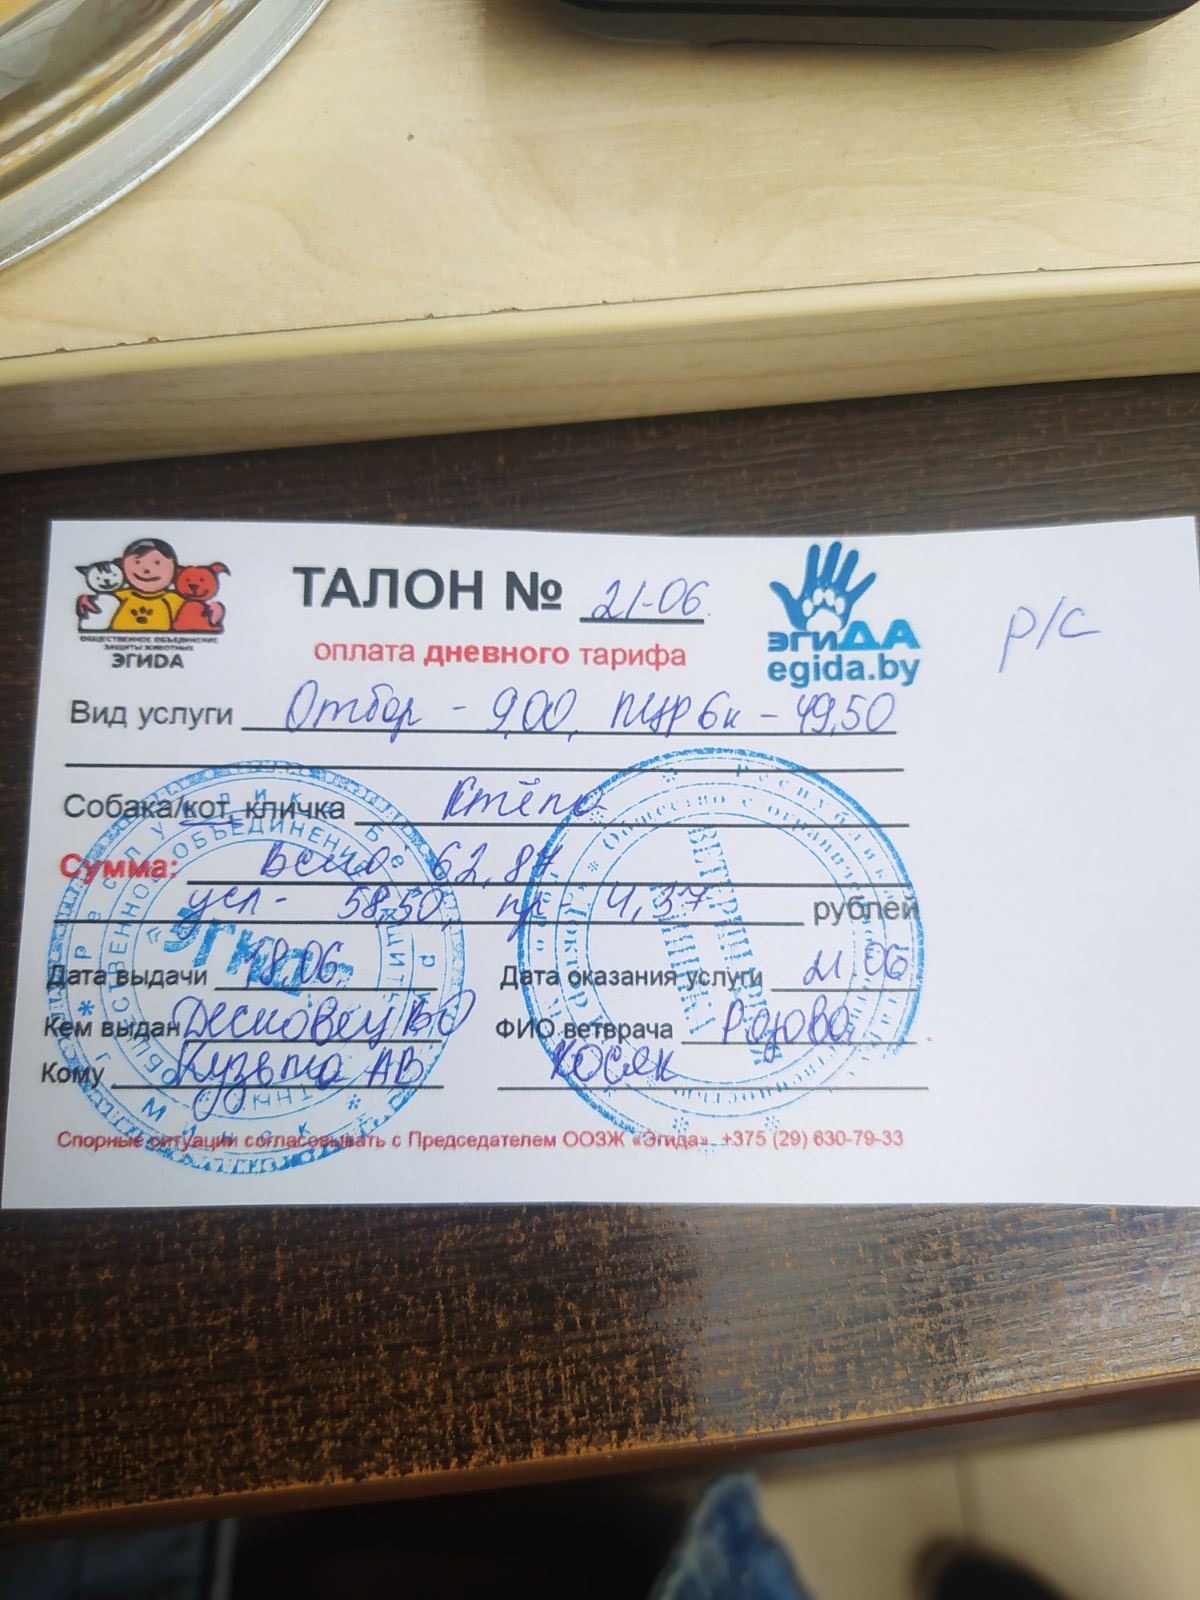 ОБЩЕСТВЕННОЕ ОБЪЕДИНЕНИЕ
ЗАЩИТЫ ЖИВОТНЫХ
ЭГИDА
ТАЛОН № 21-06
оплата дневного тарифа
эгиДА
egida.by
р/с
Вид услуги Отбор - 9,00, ПЦР 6к - 49,50
Собака/кот, кличка Стёпа
Сумма: Всего 62,87
усл - 58,50, пр - 4,37 рублей
Дата выдачи 18.06. Дата оказания услуги 21.06
Кем выдан Десковец ВО ФИО ветврача Розова
Кому Кузьма АВ Косяк
Спорные ситуации согласовывать с Председателем ООЗЖ «Эгида», +375 (29) 630-79-33